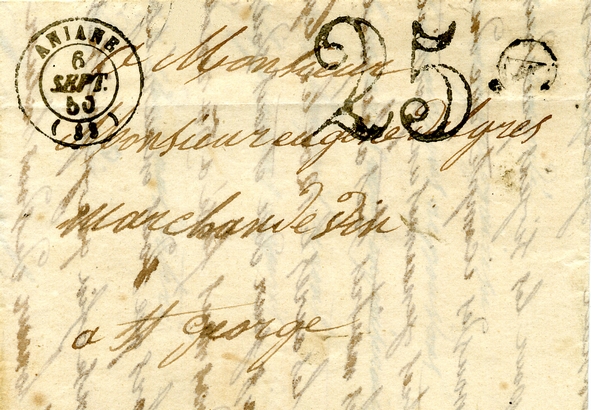 ANIANE
6
SEPT.
(33)
25
A
a Monsieur
Monsieur eugene
marchand de vin
a St george